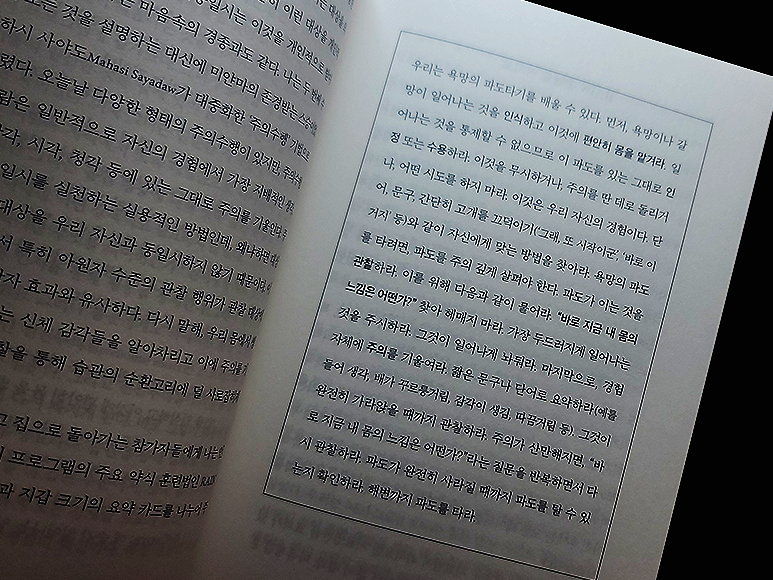 것을 설명하는 대신에 미얀마의 존경받는
하시 사야도Mahasi Sayadaw가 대중화한 '주의수행' 기법으로
렸다. 오늘날 다양한 형태의 주의수행이 있지만,
람은 일반적으로 자신의 경험에서 가장 지배적인
각, 시각, 청각 등에 있는 그대로 주의를 기울인다.
일시를 실천하는 실용적인 방법인데, 왜냐하면
대상을 우리 자신과 동일시하지 않기 때문이다.
서 특히 아원자 수준의 관찰 행위가 관찰
자 효과와 유사하다. 다시 말해, 우리 몸에서
는 신체 감각들을 알아차리고 이에 주의를
찰을 통해 습관의 순환고리에 덜
고 집으로 돌아가는 참가자들에게 나는
프로그램의 주요 약식 훈련법인 RAIN
과 지갑 크기의 요약 카드를 나누어
우리는 욕망의 파도타기를 배울 수 있다. 먼저, 욕망이나 갈
망이 일어나는 것을 인식하고 이것에 편안히 몸을 맡겨라. 일
어나는 것을 통제할 수 없으므로 이 파도를 있는 그대로 인
정 또는 수용하라. 이것을 무시하거나, 주의를 딴 데로 돌리거
나, 어떤 시도를 하지 마라. 이것은 우리 자신의 경험이다. 단
어, 문구, 간단히 고개를 끄덕이기('그래, 또 시작이군', '바로 이
거지' 등)와 같이 자신에게 맞는 방법을 찾아라. 욕망의 파도
를 타려면, 파도를 주의 깊게 살펴야 한다. 파도가 이는 것을
관찰하라. 이를 위해 다음과 같이 물어라. "바로 지금 내 몸의
느낌은 어떤가?" 찾아 헤매지 마라. 가장 두드러지게 일어나는
것을 주시하라. 그것이 일어나게 놔둬라. 마지막으로, 경험
자체에 주의를 기울여라. 짧은 문구나 단어로 요약하라(예를
들어 생각, 배가 꾸르륵거림, 감각이 생김, 따끔거림 등). 그것이
완전히 가라앉을 때까지 관찰하라. 주의가 산만해지면, "바
로 지금 내 몸의 느낌은 어떤가?"라는 질문을 반복하면서 다
시 관찰하라. 파도가 완전히 사라질 때까지 파도를 탈 수 있
는지 확인하라. 해변까지 파도를 타라.